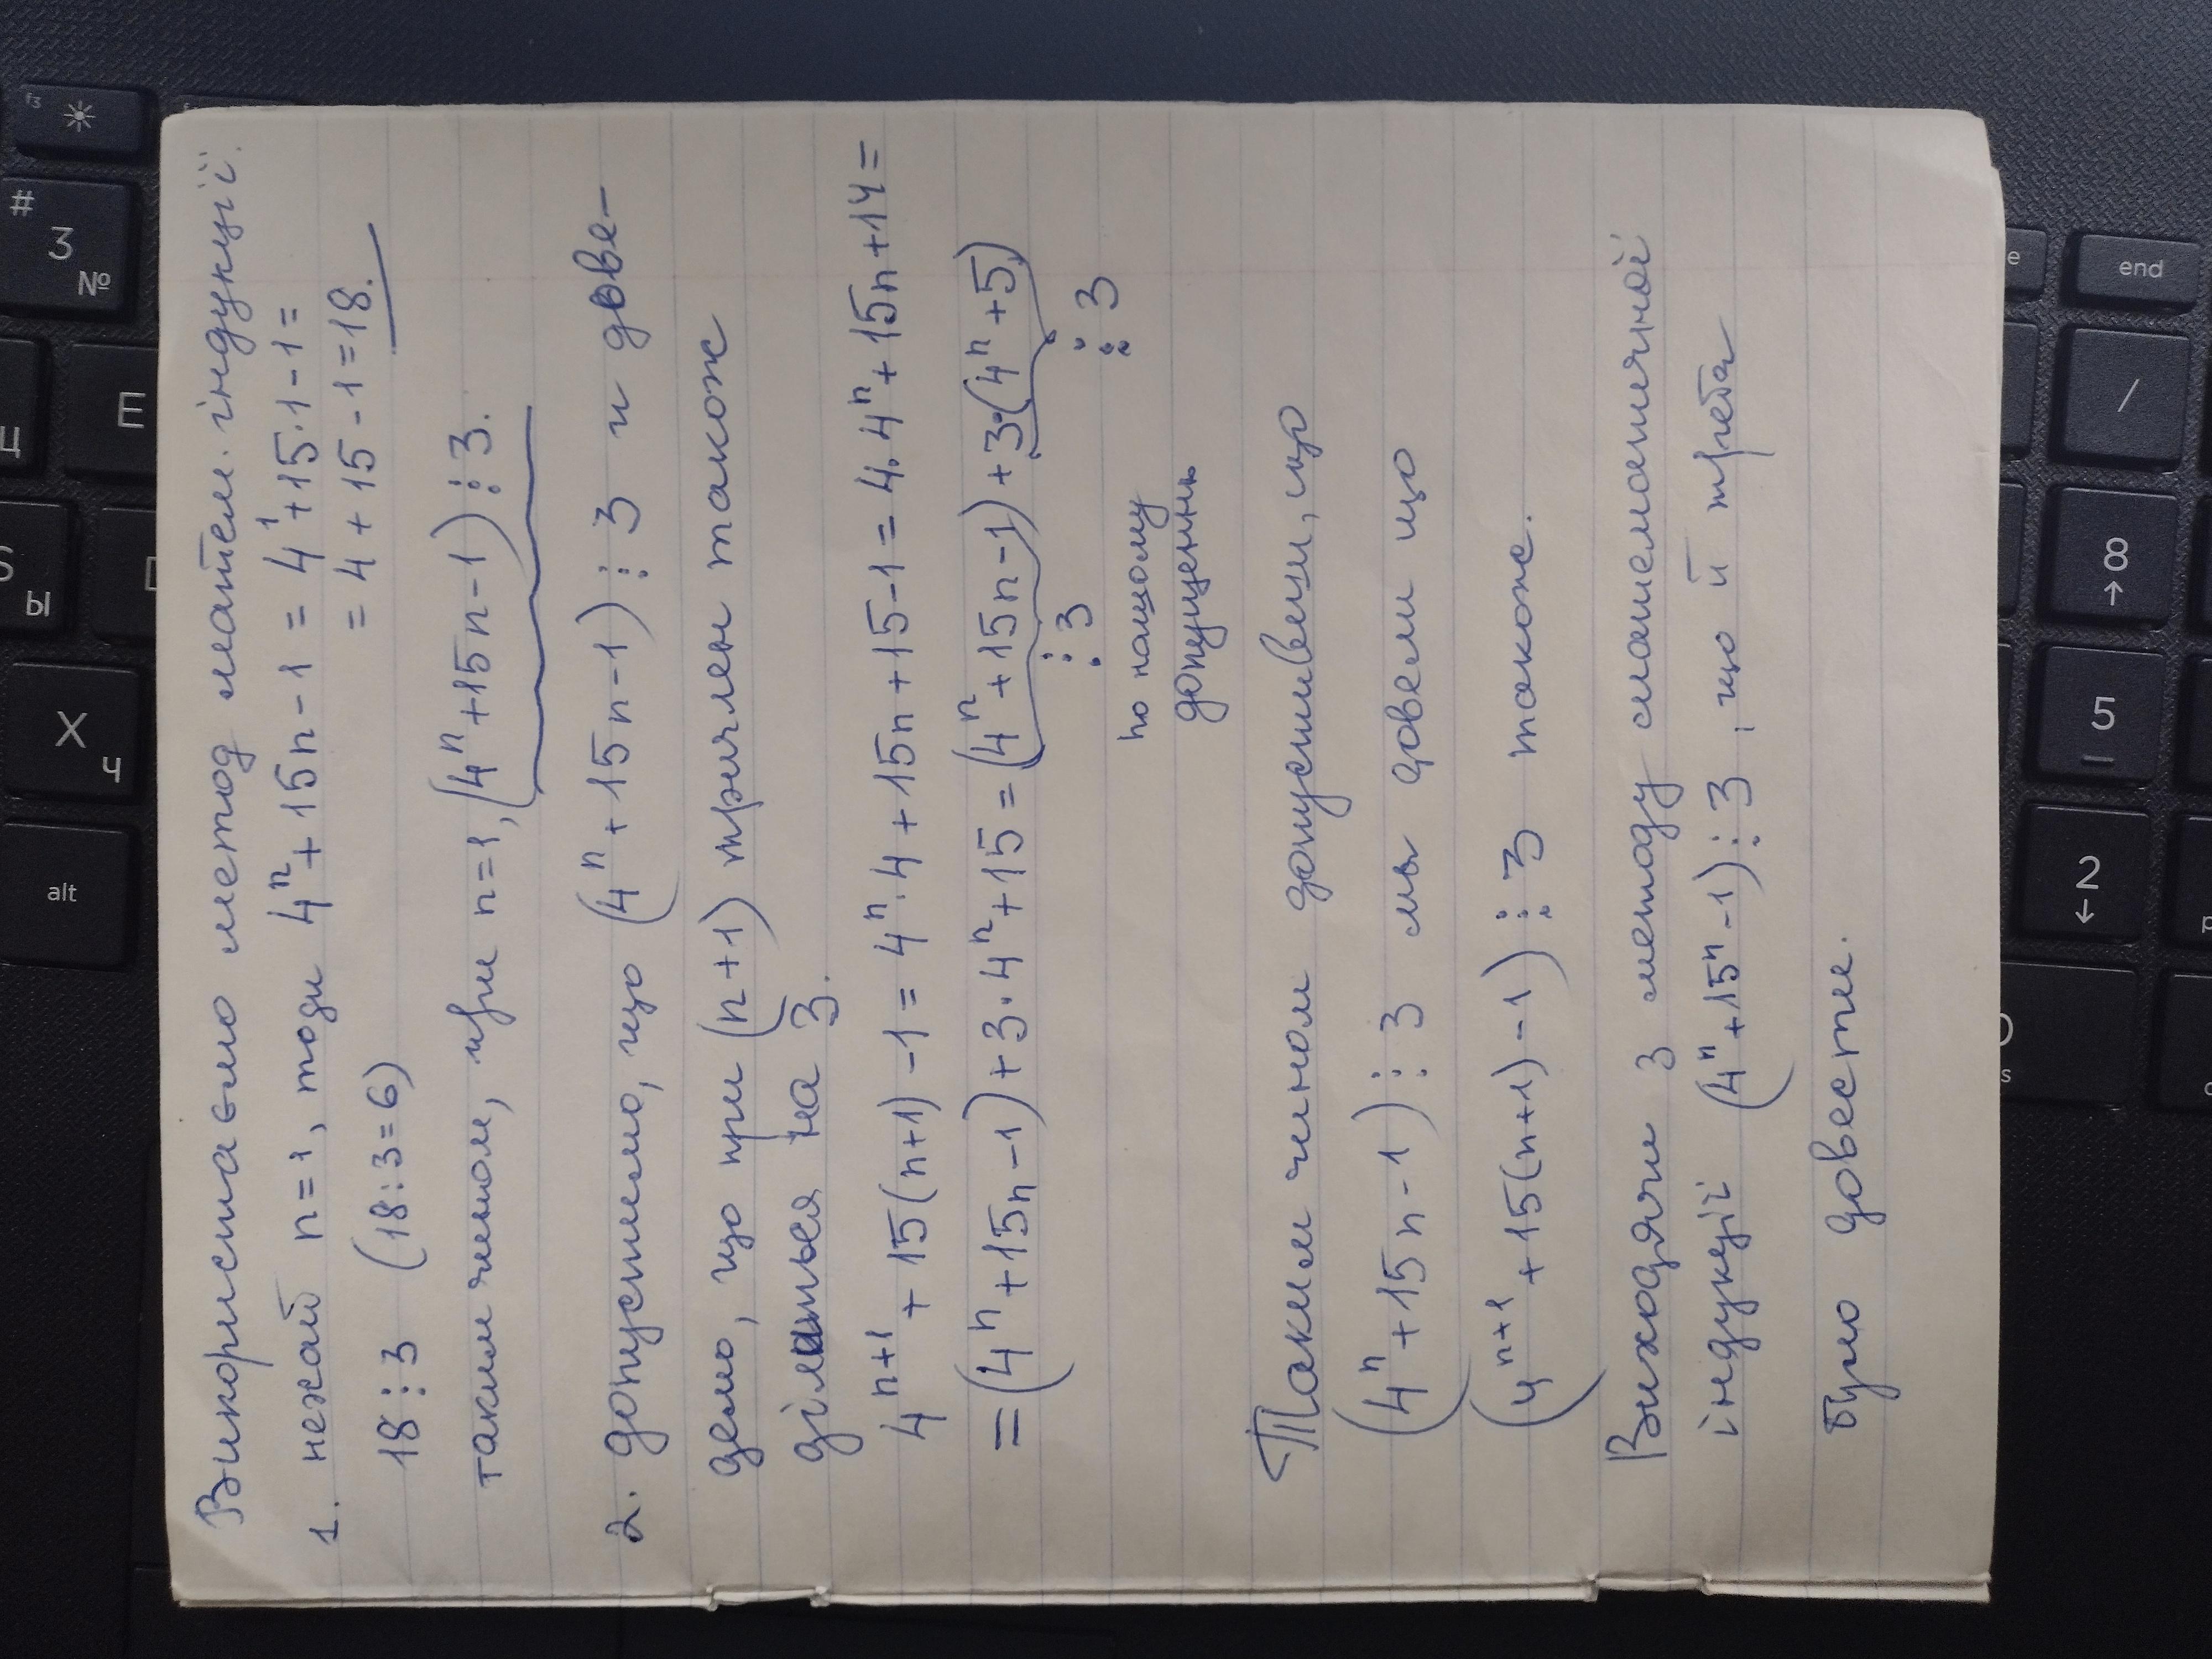 Використаємо метод матем. індукції.
1. нехай n=1, тоді 4ⁿ+15n-1=4¹+15·1-1=
=4+15-1=18.
18⋮3 (18:3=6)
таким чином, при n=1, (4ⁿ+15n-1)⋮3.
2. допустимо, що (4ⁿ+15n-1)⋮3 и дове-
демо, що при (n+1) тричлен також
ділиться на 3.
4ⁿ⁺¹+15(n+1)-1=4ⁿ·4+15n+15-1=4·4ⁿ+15n+14=
=(4ⁿ+15n-1)+3·4ⁿ+15=(4ⁿ+15n-1)+3·(4ⁿ+5)
⋮3 ⋮3
по нашому
допущенню
Таким чином допустивши, що
(4ⁿ+15n-1)⋮3 мы довели що
(4ⁿ⁺¹+15(n+1)-1)⋮3 також.
Виходячи з методу математичної
індукції (4ⁿ+15ⁿ-1)⋮3, що й треба
було довести.
f3
#
3
№
E
X
Ч
alt
S
Ы
end
/
8
→
5
2
←